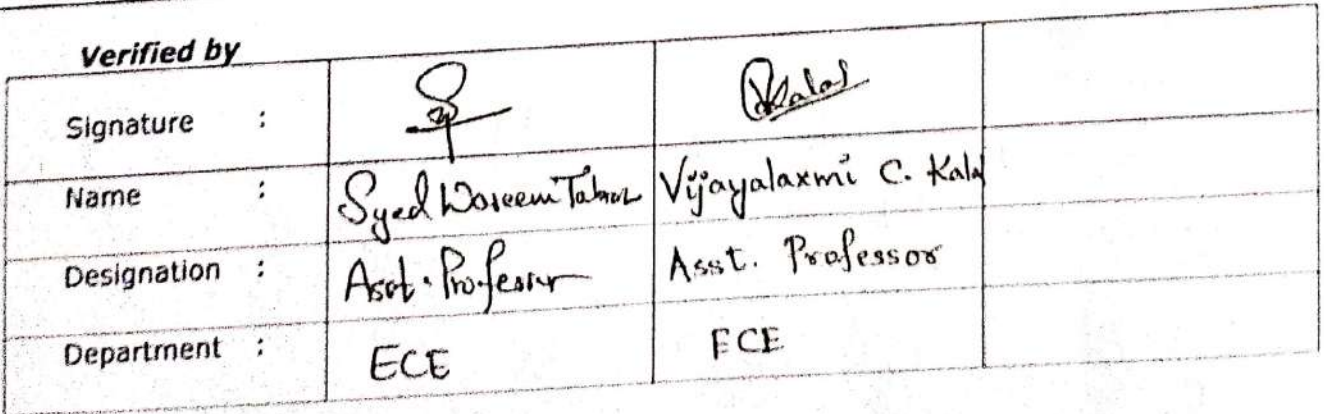 Verified by
Signature :
Name : Syed Waseem Vijayalaxmi C. Kalal
Designation : Asst. Professor Asst. Professor
Department : ECE ECE